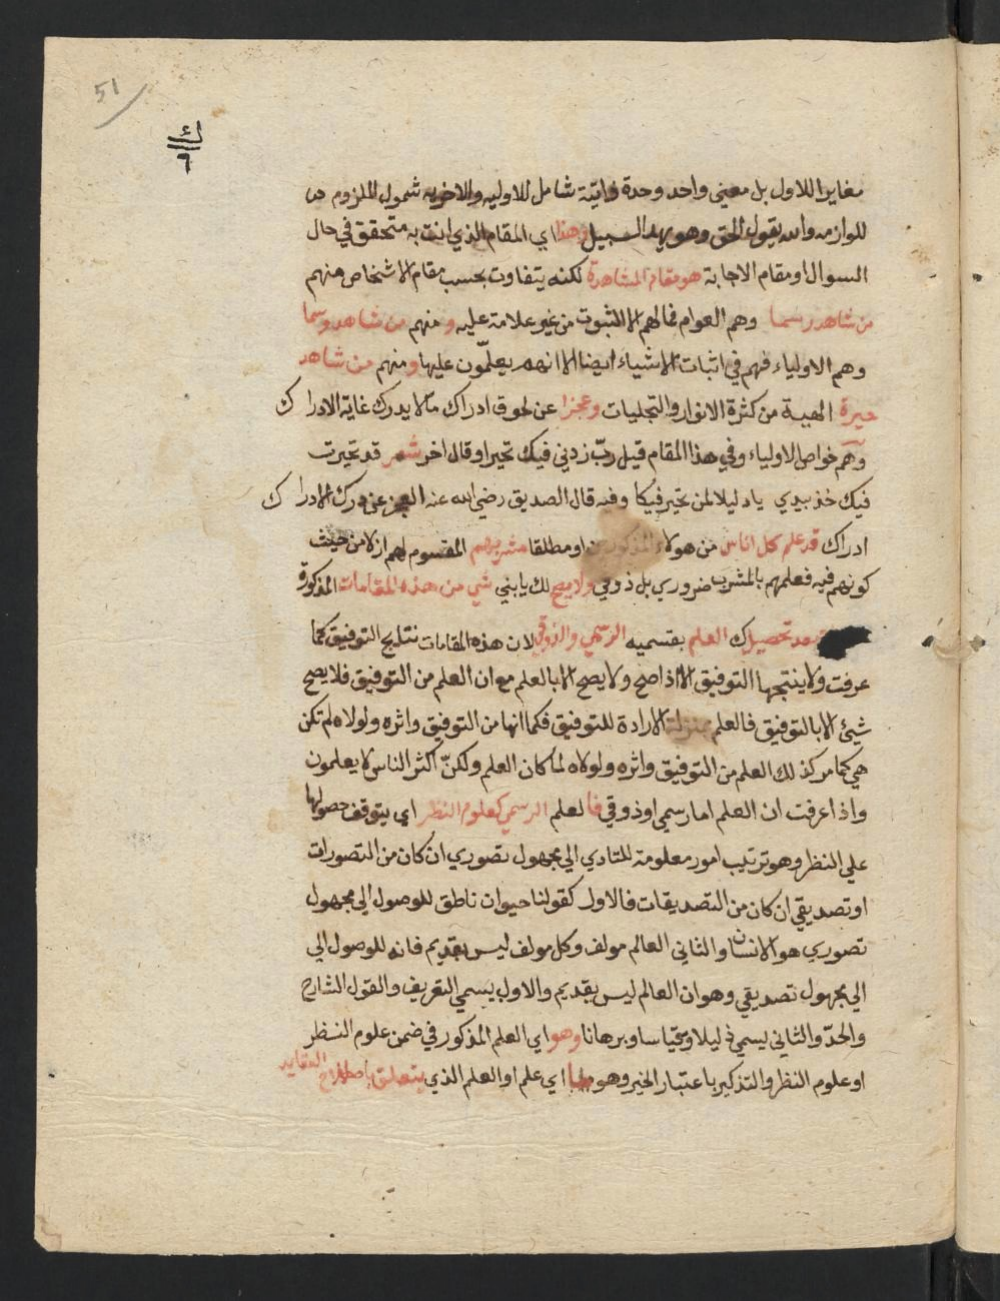 51
ك
٦
مغايرا للاول بل معنى واحد وحدة ذاتية شامل للاوليه والاخريه شمول الملزوم من
للوازمه والله يقول الحق وهو يهد السبيل وهذا اي المقام الذي انت به متحقق في حال
السوال او مقام الاجابة هو مقام المشاهدة لكنه يتفاوت بحسب مقام الاشخاص منهم
من شاهد رسما وهم العوام فما لهم الا الثبوت من غير علامة عليه ومنهم من شاهد وسما
وهم الاولياء فهم في اثبات الاشياء ايضا الا انهم يعلّمون عليها ومنهم من شاهد
حيرة الهيبة من كثرة الانوار والتجليات وعجزا عن لحوق ادراك ما لا يدرك غاية الادراك
وهم خواص الاولياء وفي هذا المقام قيل ربّ زدني فيك تحيرا وقال اخر شعر قد تحيرت
فيك خذ بيدي يا دليلا لمن تحير فيكا وفيه قال الصديق رضي الله عنه العجز عن درك الادراك
ادراك قد علم كل اناس من هولاء المذكورين او مطلقا مشربهم المقسوم لهم ازلا من حيث
كونهم فيه فعلمهم بالمشرب ضروري بل ذوقي ولا يصح لك يا بني شي من هذه المقامات المذكورة
بعد تحصيلك العلم بقسميه الرسمي والذوقي لان هذه المقامات نتايج التوفيق كما
عرفت ولا ينتجها التوفيق الا اذا صح ولا يصح الا بالعلم مع ان العلم من التوفيق فلا يصح
شيئ الا بالتوفيق فالعلم بمنزلة الارادة للتوفيق فكما انها من التوفيق واثره ولولاه لم تكن
هي كما مر كذلك العلم من التوفيق واثره ولولاه لما كان العلم ولكنّ اكثر الناس لا يعلمون
واذا عرفت ان العلم اما رسمي او ذوقي فالعلم الرسمي كعلوم النظر اي يتوقف حصولها
علي النظر وهو ترتيب امور معلومة للتادي الي مجهول تصوري ان كان من التصورات
او تصديقي ان كان من التصديقات فالاول كقولنا حيوان ناطق للوصول الى مجهول
تصوري هو الانسان والثاني العالم مولف وكل مولف ليس بقديم فانه للوصول الي
الي مجهول تصديقي وهو ان العالم ليس بقديم والاول يسمي التعريف والقول الشارح
والحدّ والثاني يسمي دليلا وقياسا وبرهانا وهو اي العلم المذكور في ضمن علوم النظر
او علوم النظر والتذكير باعتبار الخبر وهو ما اي علم او العلم الذي يتعلق باصلاح العقايد